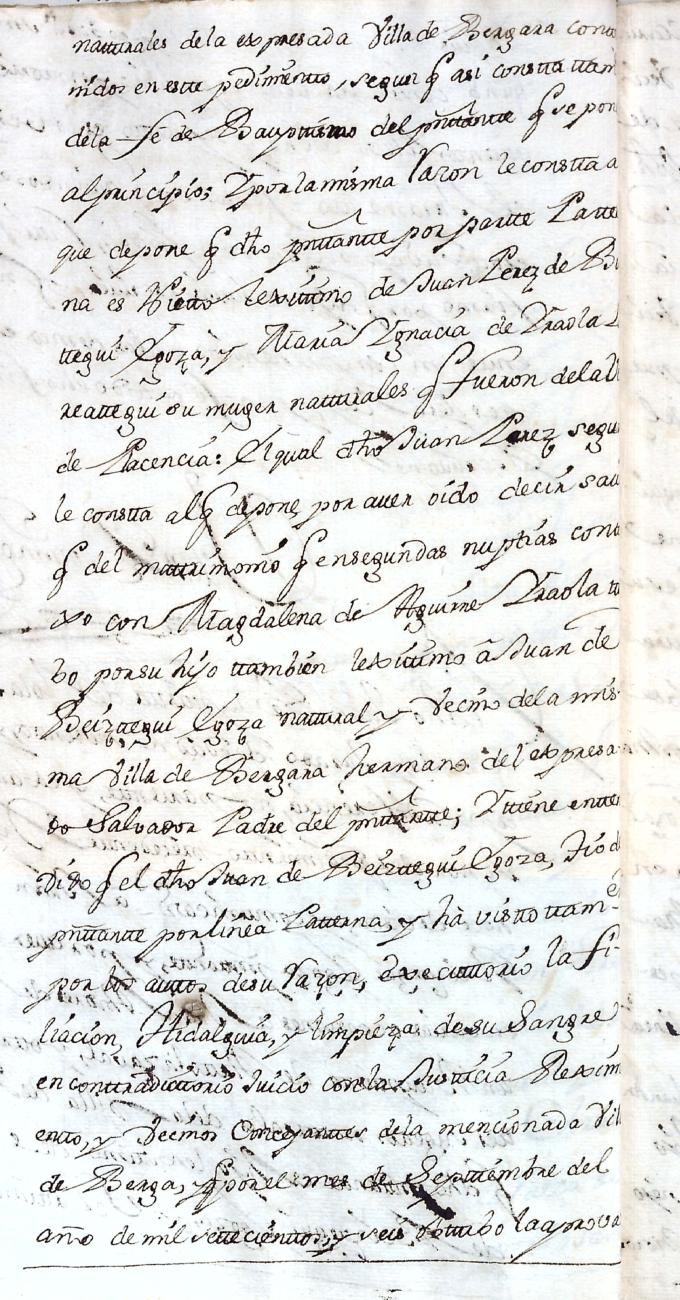 natturales dela expresada Villa de Bergara conte
nidos en estte pedimentto, segun q̃ asi constta ttam
dela fẽ de Bapttismo del pnttantte q̃ se pon
al principio; Y por la misma razon le constta a
que depone q̃ dħo pnttantte por partte Patte
na es Nietto lexittimo de Juan Perez de Bei
ttegui Egoza, y Maria Ygnacia de Yraola
reattegui su muger natturales q̃ fueron dela Vi
de Placencia: El qual dħo Juan Perez segu
le constta al q̃ depone, por auer oido decir saue
q̃ del mattrimonio q̃ en segundas nuptias conttr
xo con Magdalena de Aguirre Yraola tu
bo por su hijo ttambien lexittimo ã Juan de
Beizttegui Egoza nattural y Vecino dela mis-
ma Villa de Bergara hermano del expresa-
do Salvador Padre del pnttantte; Y ttiene entten
dido q̃ el dħo Juan de Beizttegui Egoza, Tio d
pnttantte por linea Patterna, y hà vistto ttam-
por los auttos de su razon, executtorio la fi-
liacion, Hidalguia, y limpieza de su Sangre
en conttradicttorio Juicio con la Justticia Reximi
entto, y Vecinos Concejanttes dela mencionada Vill
de Berga, y q̃ por el mes de Septtiembre del
año de mil settecienttos, y seis obttubo la aprova